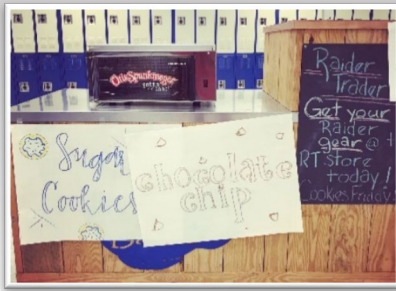 Otis Spunkmeyer
Sugar
Cookies
chocolate
chip
Raider
Trader
Get your
Raider
gear @ t
RT store
today!
Cookies Friday